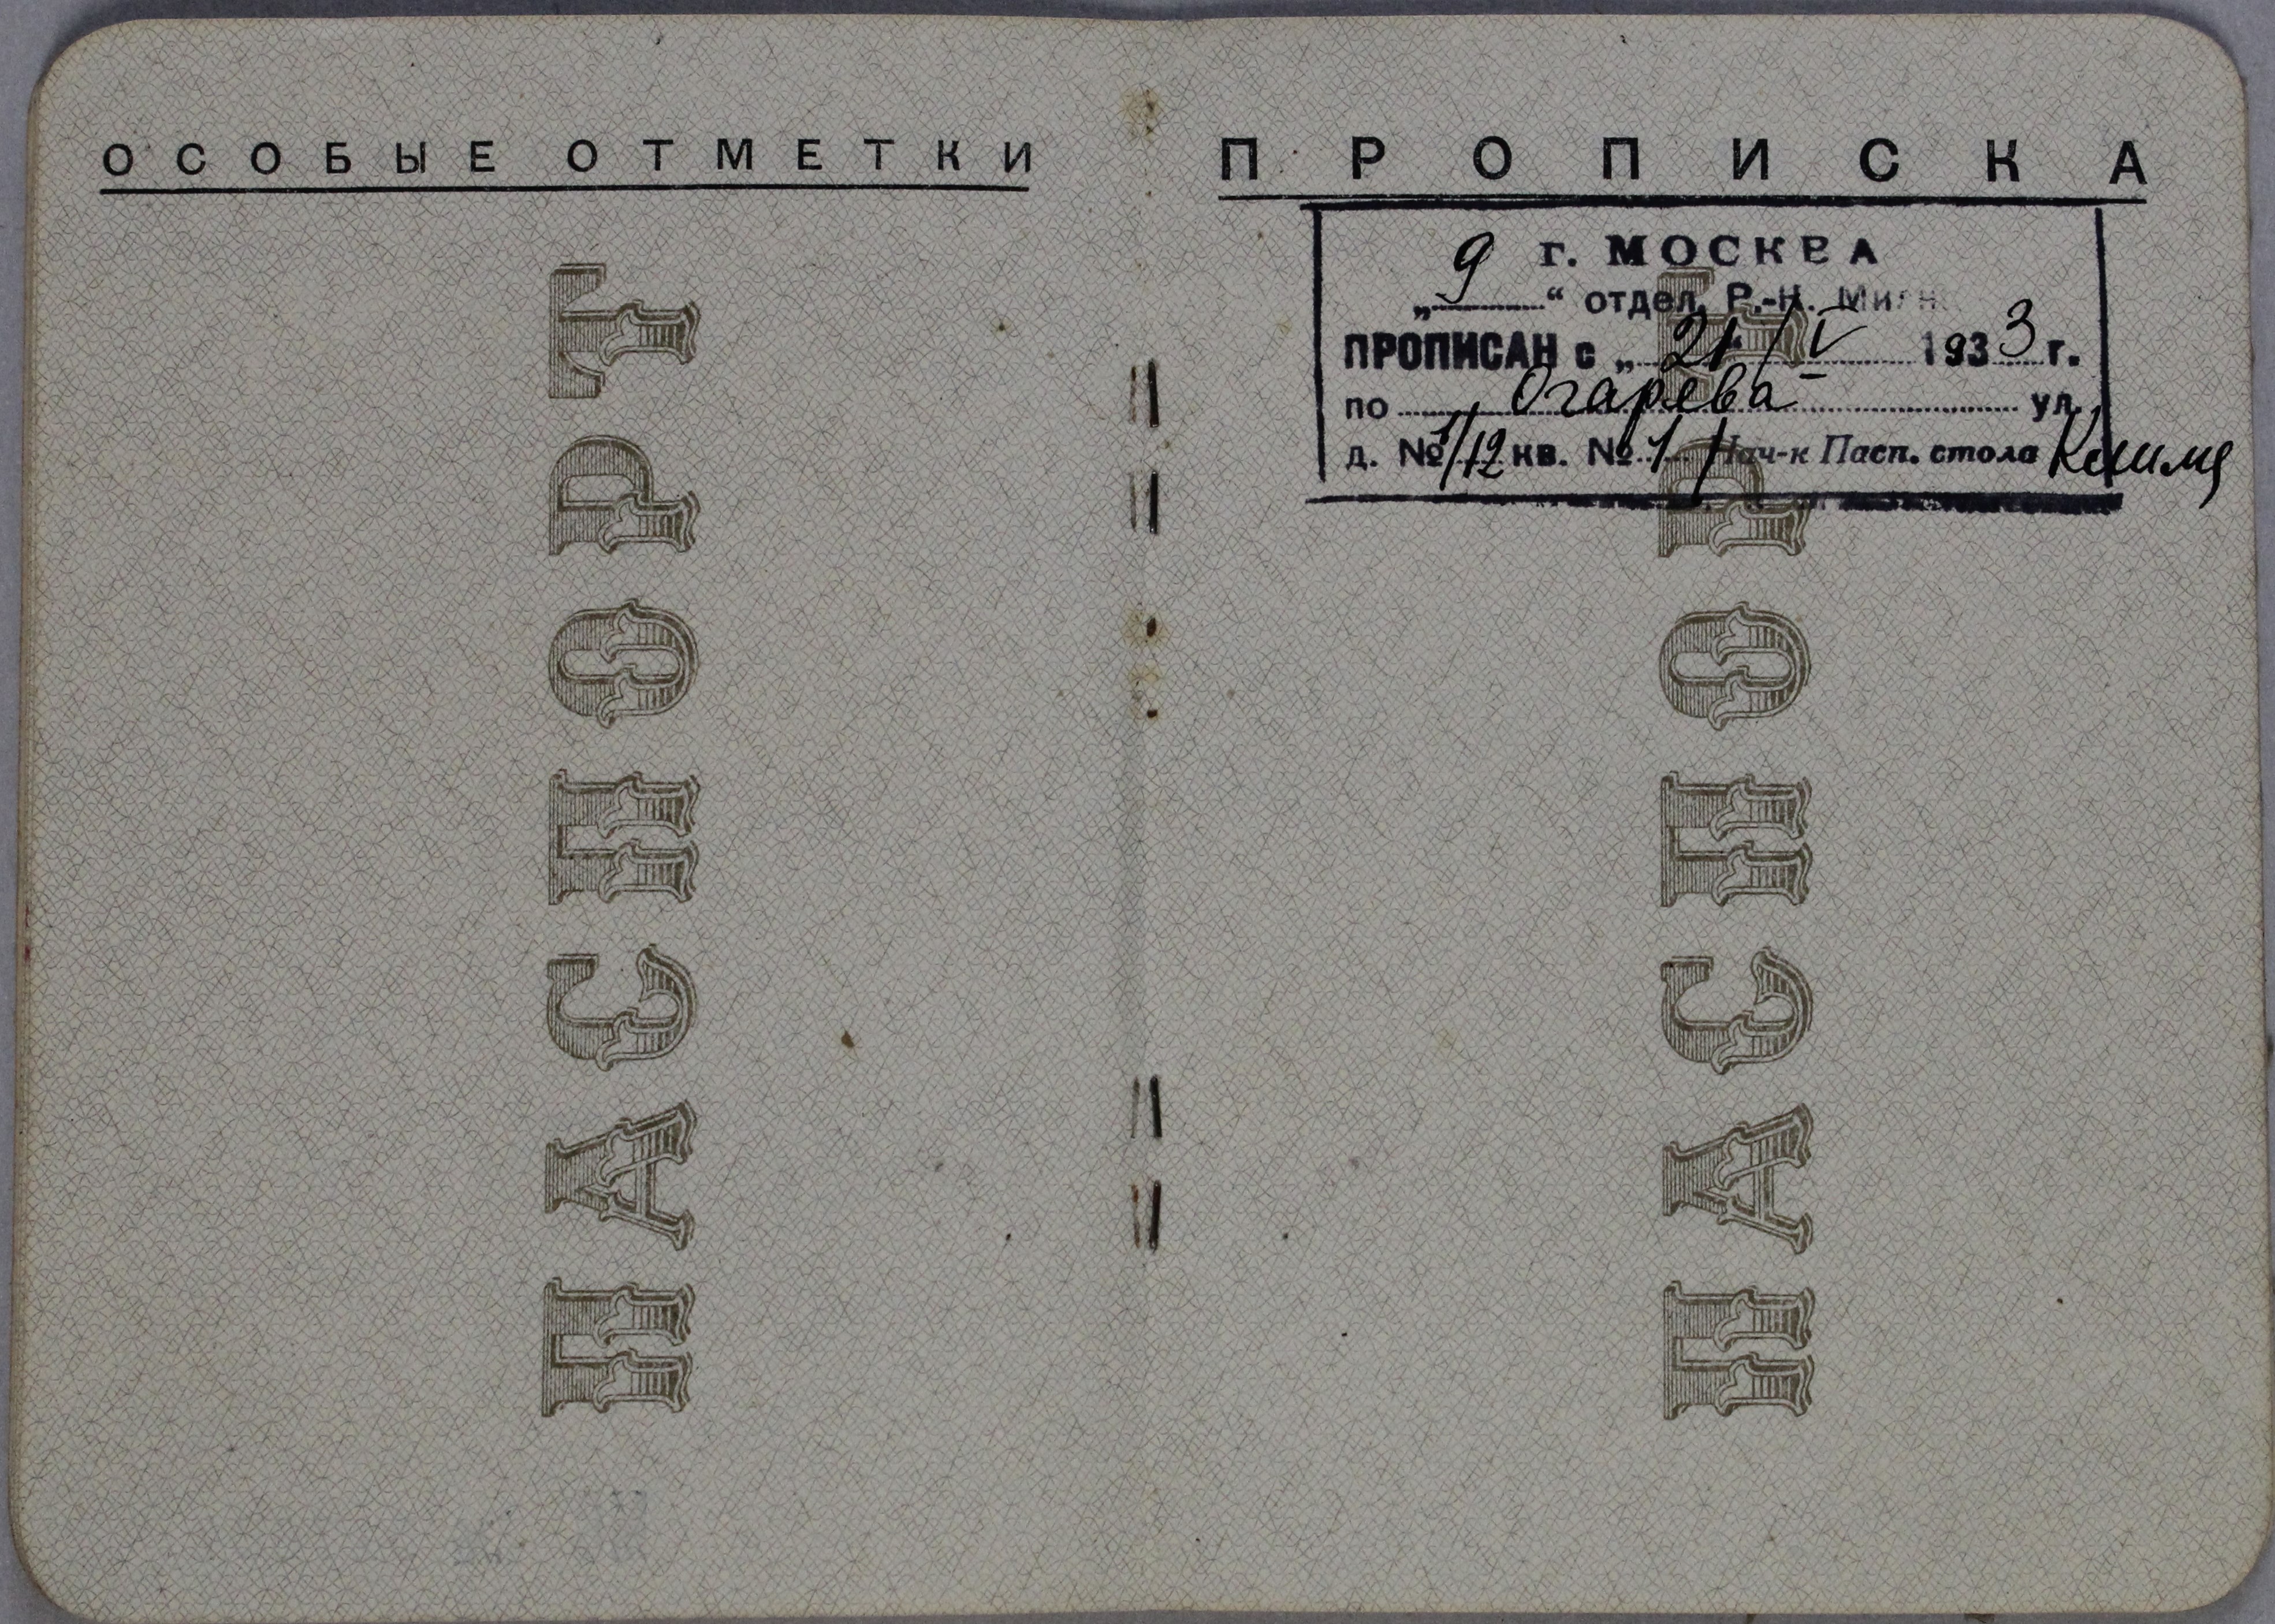 ОСОБЫЕ ОТМЕТКИ
ПАСПОРТ
ПРОПИСКА
г. МОСКВА
„9“ отдел. Р.-К.
ПРОПИСАН с „21“/V 1933 г.
по Огарева ул.,
д. № 1/12 кв. № 1 Нач-к Пасп. стола
ПАСПОРТ